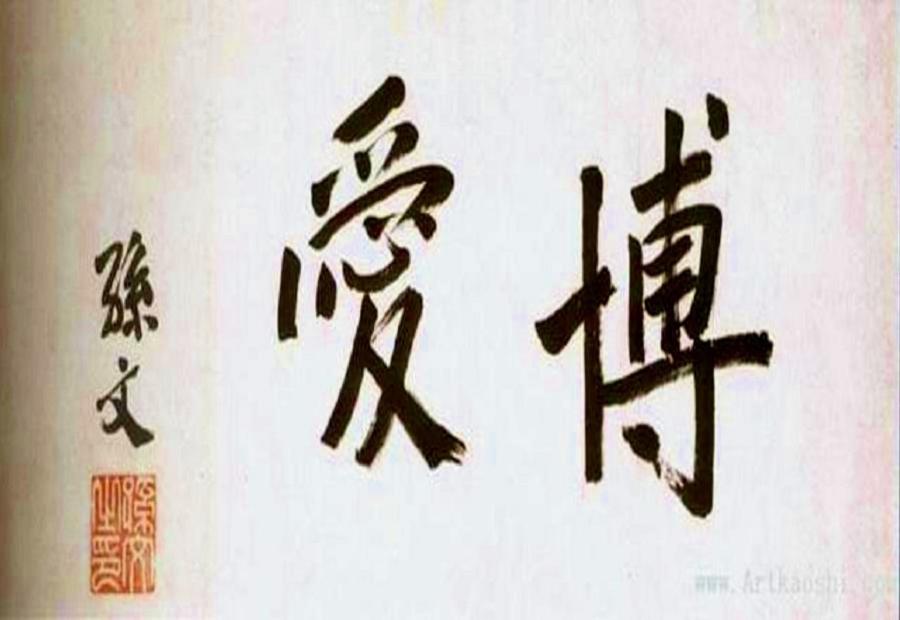 博愛
孫文
孫文之印
www.Artkaoshi.com